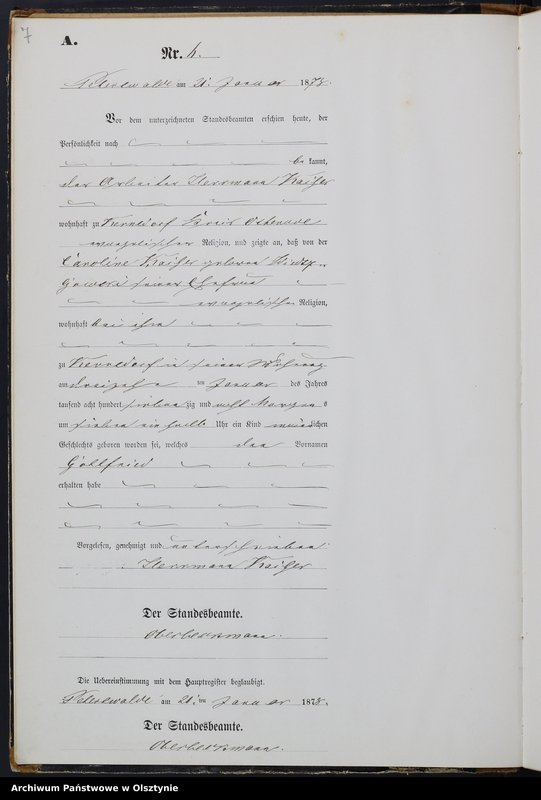 7
A.
Nr. 6.
Peterswalde am 21. Januar 1878.
Vor dem unterzeichneten Standesbeamten erschien heute, der
Persönlichkeit nach
be kannt,
der Arbeiter Herrmann Kaiser
wohnhaft zu Kreis Osterode
evangelischer Religion, und zeigte an, daß von der
Caroline Kaiser geborene
seiner Ehefrau
evangelischer Religion,
wohnhaft bei ihm
zu in seiner Wohnung
am dreizehn ten Januar des Jahres
tausend acht hundert sieben zig und acht Morgens
um sieben ein halb Uhr ein Kind männlichen
Geschlechts geboren worden sei, welches den Vornamen
Gottfried
erhalten habe
Vorgelesen, genehmigt und unterschrieben
Herrmann Kaiser
Der Standesbeamte.
Die Uebereinstimmung mit dem Hauptregister beglaubigt.
Peterswalde am 21. ten Januar 1878.
Der Standesbeamte.
Archiwum Państwowe w Olsztynie